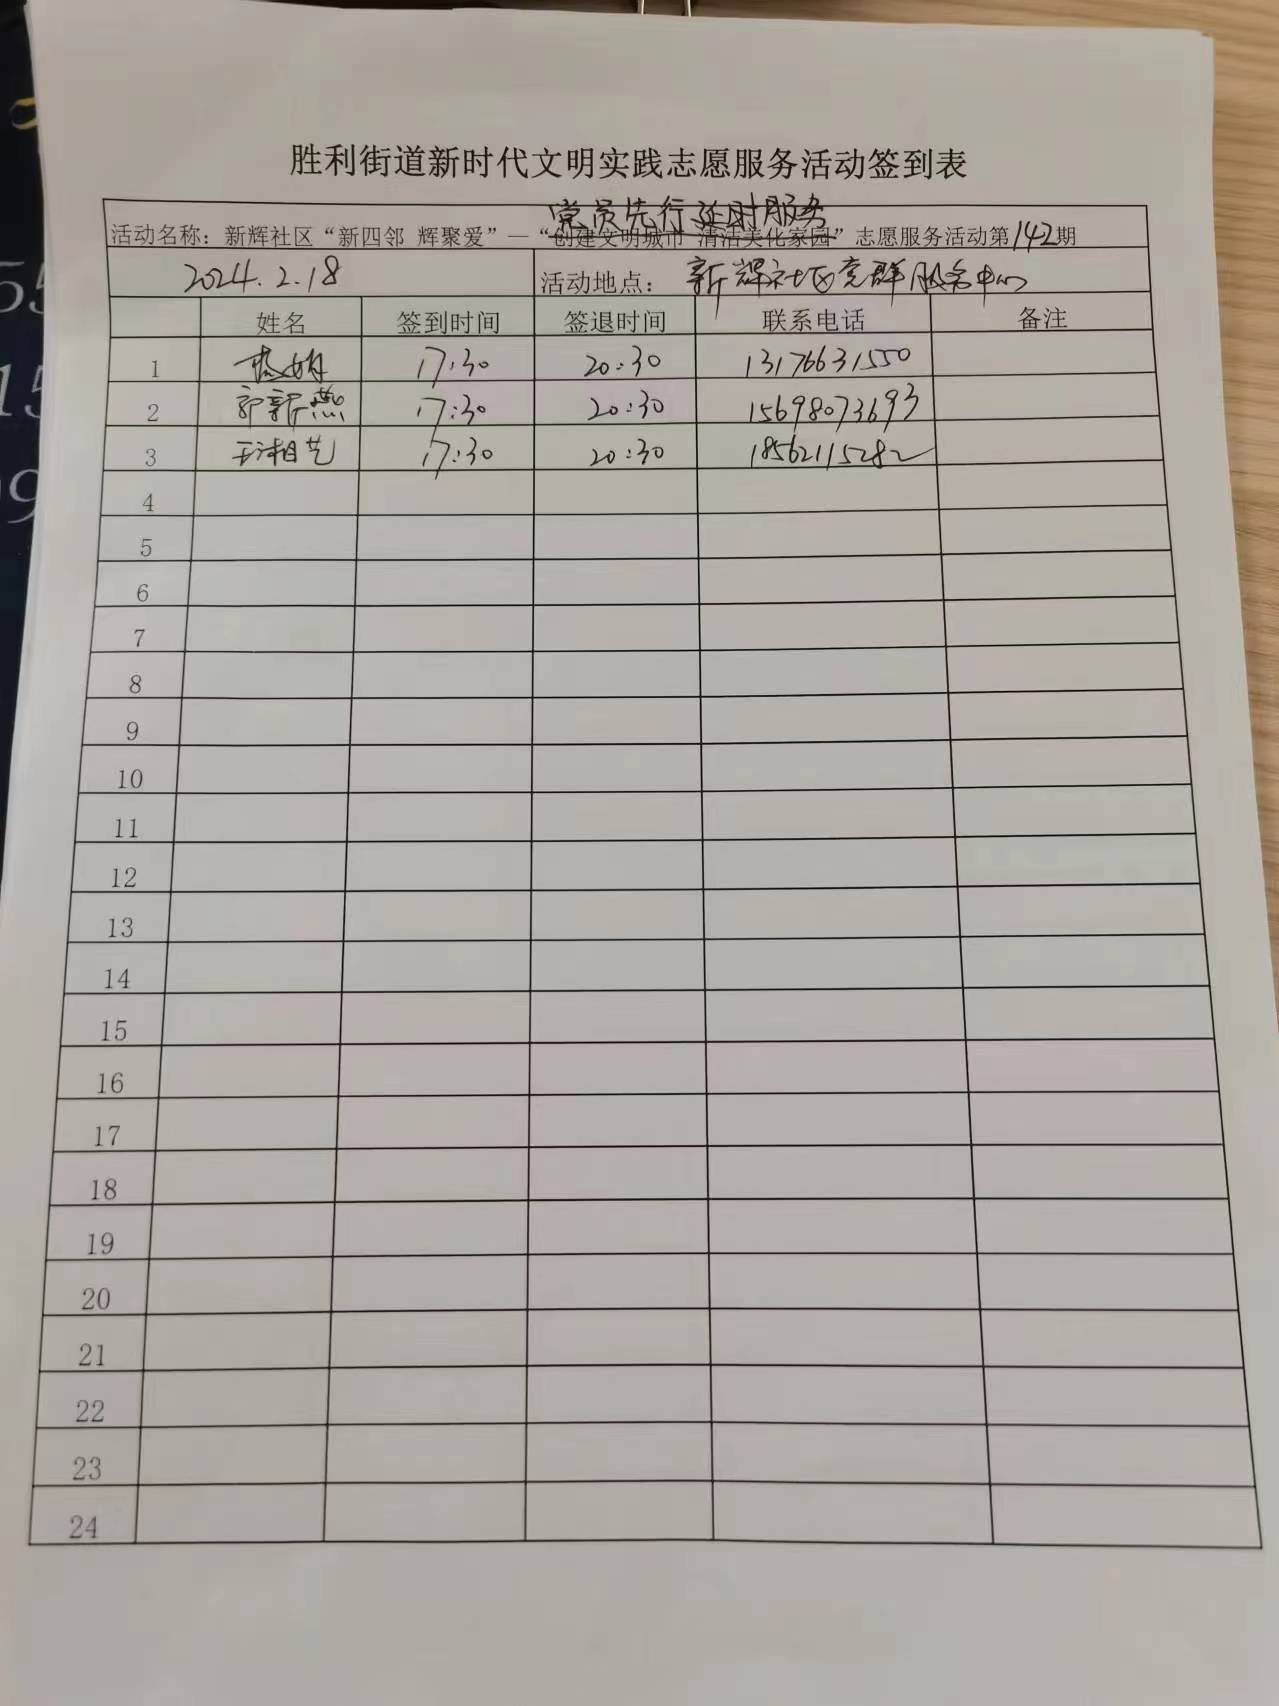 胜利街道新时代文明实践志愿服务活动签到表
党员先行 延时服务
活动名称：新辉社区“新四邻 辉聚爱”—“创建文明城市 清洁美化家园”志愿服务活动第142期
2024.2.18 活动地点：新辉社区党群服务中心
姓名 签到时间 签退时间 联系电话 备注
1 17:30 20:30 13176631550
2 郭新燕 17:30 20:30 15698073693
3 王湘艺 17:30 20:30 18562115282
4
5
6
7
8
9
10
11
12
13
14
15
16
17
18
19
20
21
22
23
24